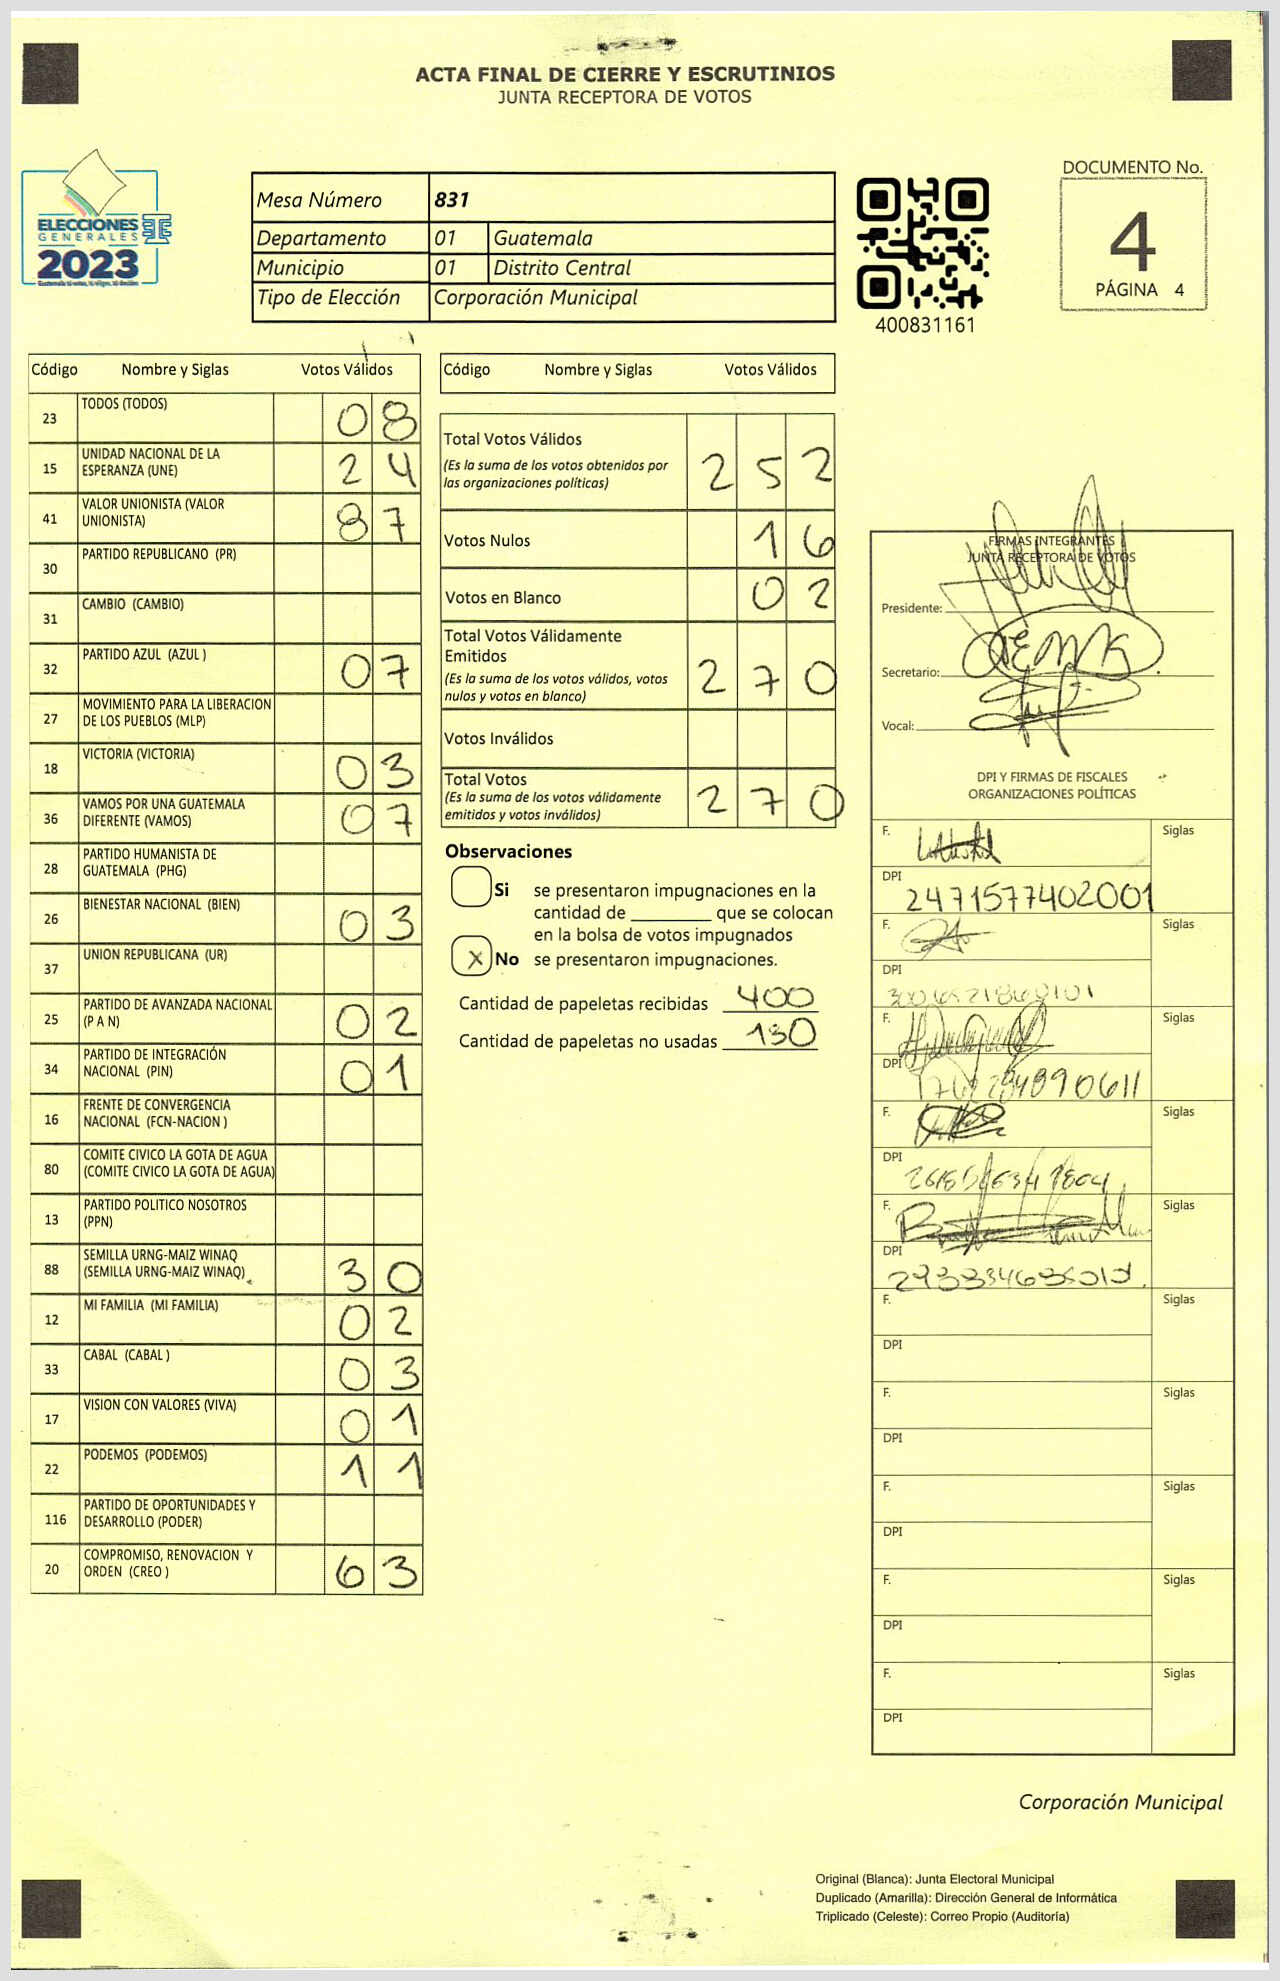 ACTA FINAL DE CIERRE Y ESCRUTINIOS
JUNTA RECEPTORA DE VOTOS
ELECCIONES
GENERALES
2023
Mesa Número 831
Departamento 01 Guatemala
Municipio 01 Distrito Central
Tipo de Elección Corporación Municipal
400831161
DOCUMENTO No.
4
PÁGINA 4
Código Nombre y Siglas Votos Válidos
23 TODOS (TODOS) 08
15 UNIDAD NACIONAL DE LA
ESPERANZA (UNE) 24
41 VALOR UNIONISTA (VALOR
UNIONISTA) 87
30 PARTIDO REPUBLICANO (PR)
31 CAMBIO (CAMBIO)
32 PARTIDO AZUL (AZUL ) 07
27 MOVIMIENTO PARA LA LIBERACION
DE LOS PUEBLOS (MLP)
18 VICTORIA (VICTORIA) 03
36 VAMOS POR UNA GUATEMALA
DIFERENTE (VAMOS) 07
28 PARTIDO HUMANISTA DE
GUATEMALA (PHG)
26 BIENESTAR NACIONAL (BIEN) 03
37 UNION REPUBLICANA (UR)
25 PARTIDO DE AVANZADA NACIONAL
(P A N) 02
34 PARTIDO DE INTEGRACIÓN
NACIONAL (PIN) 01
16 FRENTE DE CONVERGENCIA
NACIONAL (FCN-NACION )
80 COMITE CIVICO LA GOTA DE AGUA
(COMITE CIVICO LA GOTA DE AGUA)
13 PARTIDO POLITICO NOSOTROS
(PPN)
88 SEMILLA URNG-MAIZ WINAQ
(SEMILLA URNG-MAIZ WINAQ) 30
12 MI FAMILIA (MI FAMILIA) 02
33 CABAL (CABAL ) 03
17 VISION CON VALORES (VIVA) 01
22 PODEMOS (PODEMOS) 11
116 PARTIDO DE OPORTUNIDADES Y
DESARROLLO (PODER)
20 COMPROMISO, RENOVACION Y
ORDEN (CREO ) 63
Código Nombre y Siglas Votos Válidos
Total Votos Válidos 252
(Es la suma de los votos obtenidos por
las organizaciones políticas)
Votos Nulos 16
Votos en Blanco 02
Total Votos Válidamente
Emitidos 270
(Es la suma de los votos válidos, votos
nulos y votos en blanco)
Votos Inválidos
Total Votos 270
(Es la suma de los votos válidamente
emitidos y votos inválidos)
Observaciones
Si se presentaron impugnaciones en la
cantidad de ________ que se colocan
en la bolsa de votos impugnados
X No se presentaron impugnaciones.
Cantidad de papeletas recibidas 400
Cantidad de papeletas no usadas 130
FIRMAS INTEGRANTES
JUNTA RECEPTORA DE VOTOS
Presidente:
Secretario:
Vocal:
DPI Y FIRMAS DE FISCALES
ORGANIZACIONES POLÍTICAS
F. Siglas
DPI 2471577402001
F. Siglas
DPI
F. Siglas
DPI
F. Siglas
DPI
F. Siglas
DPI
F. Siglas
DPI
F. Siglas
DPI
F. Siglas
DPI
F. Siglas
DPI
F. Siglas
DPI
Corporación Municipal
Original (Blanca): Junta Electoral Municipal
Duplicado (Amarilla): Dirección General de Informática
Triplicado (Celeste): Correo Propio (Auditoría)